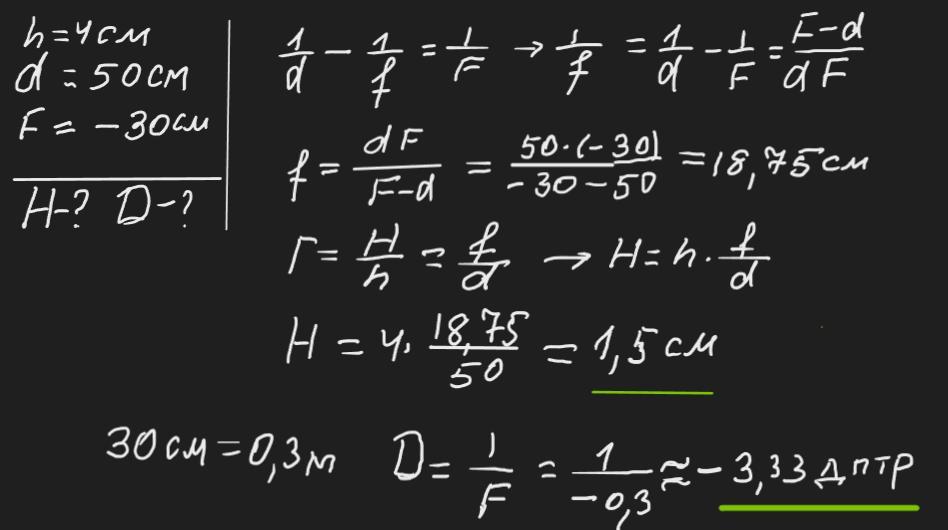 h=4см
d=50см
F= -30см
H-? D-?
1/d - 1/f = 1/F → 1/f = 1/d - 1/F = F-d/dF
f = dF/F-d = 50·(-30)/-30-50 = 18,75 см
Г= H/h = f/d → H= h · f/d
H = 4· 18,75/50 = 1,5 см
30см=0,3м D= 1/F = 1/-0,3 ≈ - 3,33 дптр